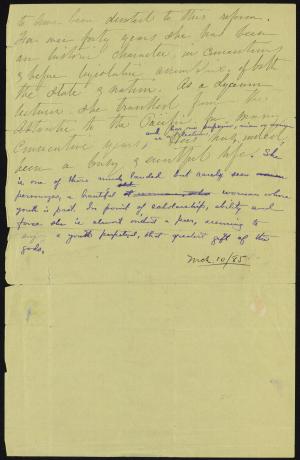 to have been devoted to this reform.
For over forty years she had been
an historic character, in conventions
& before legislative assemblies, of both
the State & nation. As a Lyceum
lecturer, she travelled from the
Atlantic to the Pacific for many
and her one purpose, in
consecutive years, has indeed,
been a busy & eventful life. She
is one of those much lauded but rarely seen
personages, a beautiful woman whose
youth is past. In point of scholarship, ability and
force she is almost without a peer, seeming to
a youth perpetual, that greatest gift of the
gods.
Mch. 10/85